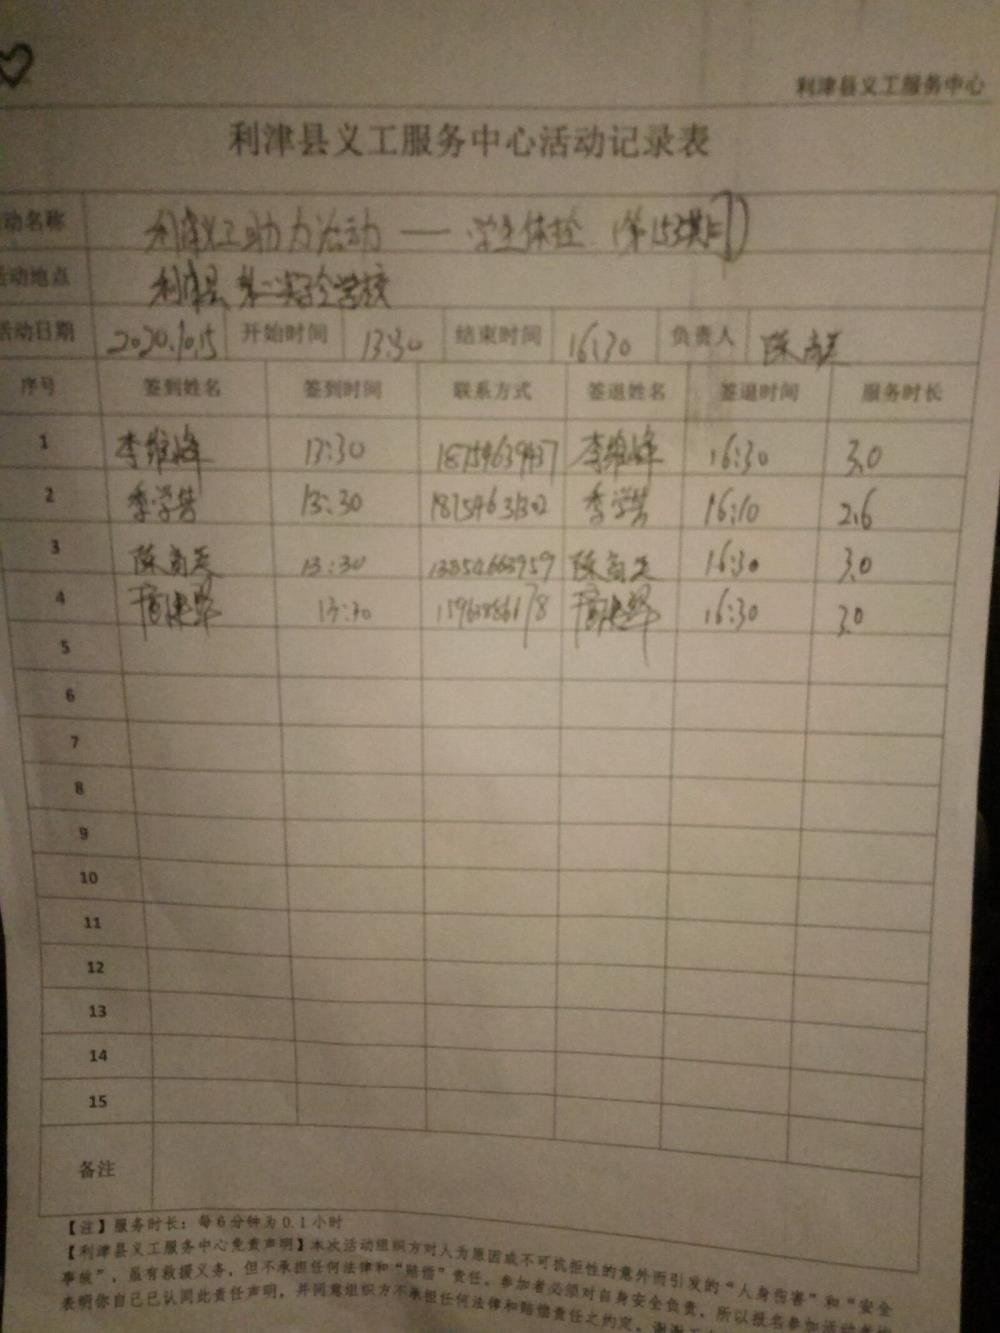 利津县义工服务中心
利津县义工服务中心活动记录表
动名称 利津义工助力活动——学生体检（第153期）
活动地点 利津县第二实验学校
活动日期 2020.10.15 开始时间 13:30 结束时间 16:30 负责人 陈
序号 签到姓名 签到时间 联系方式 签退姓名 签退时间 服务时长
1 李维峰 13:30 李维峰 16:30 3.0
2 季学芳 13:30 季学芳 16:10 2.6
3 陈 13:30 陈 16:30 3.0
4 13:30 16:30 3.0
5
6
7
8
9
10
11
12
13
14
15
备注
【注】服务时长：每6分钟为0.1小时
【利津县义工服务中心免责声明】本次活动组织方对人为原因或不可抗拒性的意外而引发的“人身伤害”和“安全
事故”，虽有救援义务，但不承担任何法律和“赔偿”责任。参加者必须对自身安全负责，所以报名参加活动者
表明你自己已认同此责任声明，并同意组织方不承担任何法律和赔偿责任之约定。谢谢